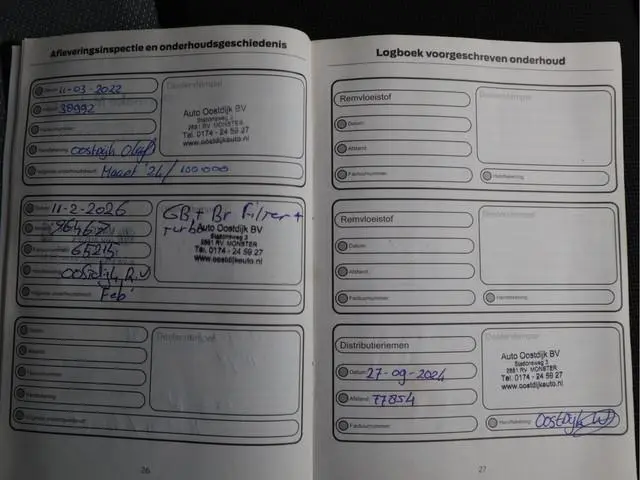 Afleveringsinspectie en onderhoudsgeschiedenis
Datum: 11-03-2022
Afstand: 38992
Factuurnummer:
Handtekening: Oostdijk
Volgende onderhoudsbeurt: Maart '24 / 100.000
Dealerstempel
Auto Oostdijk BV
Stationsweg 3
2681 RV MONSTER
Tel. 0174 - 24 59 27
www.oostdijkauto.nl
Datum: 11-2-2026
Factuurnummer: 65215
Handtekening: Oostdijk R.V
Volgende onderhoudsbeurt: Feb'
GB + Br Filter +
turbo
Auto Oostdijk BV
Stationsweg 3
2681 RV MONSTER
Tel. 0174 - 24 59 27
www.oostdijkauto.nl
Datum:
Afstand:
Factuurnummer:
Handtekening:
Volgende onderhoudsbeurt:
Dealerstempel
26
Logboek voorgeschreven onderhoud
Remvloeistof
Datum:
Afstand:
Factuurnummer:
Dealerstempel
Handtekening:
Remvloeistof
Datum:
Afstand:
Factuurnummer:
Dealerstempel
Handtekening:
Distributieriemen
Datum: 27-09-2024
Afstand: 77854
Factuurnummer:
Dealerstempel
Auto Oostdijk BV
Stationsweg 3
2681 RV MONSTER
Tel. 0174 - 24 59 27
www.oostdijkauto.nl
Handtekening: Oostdijk
27